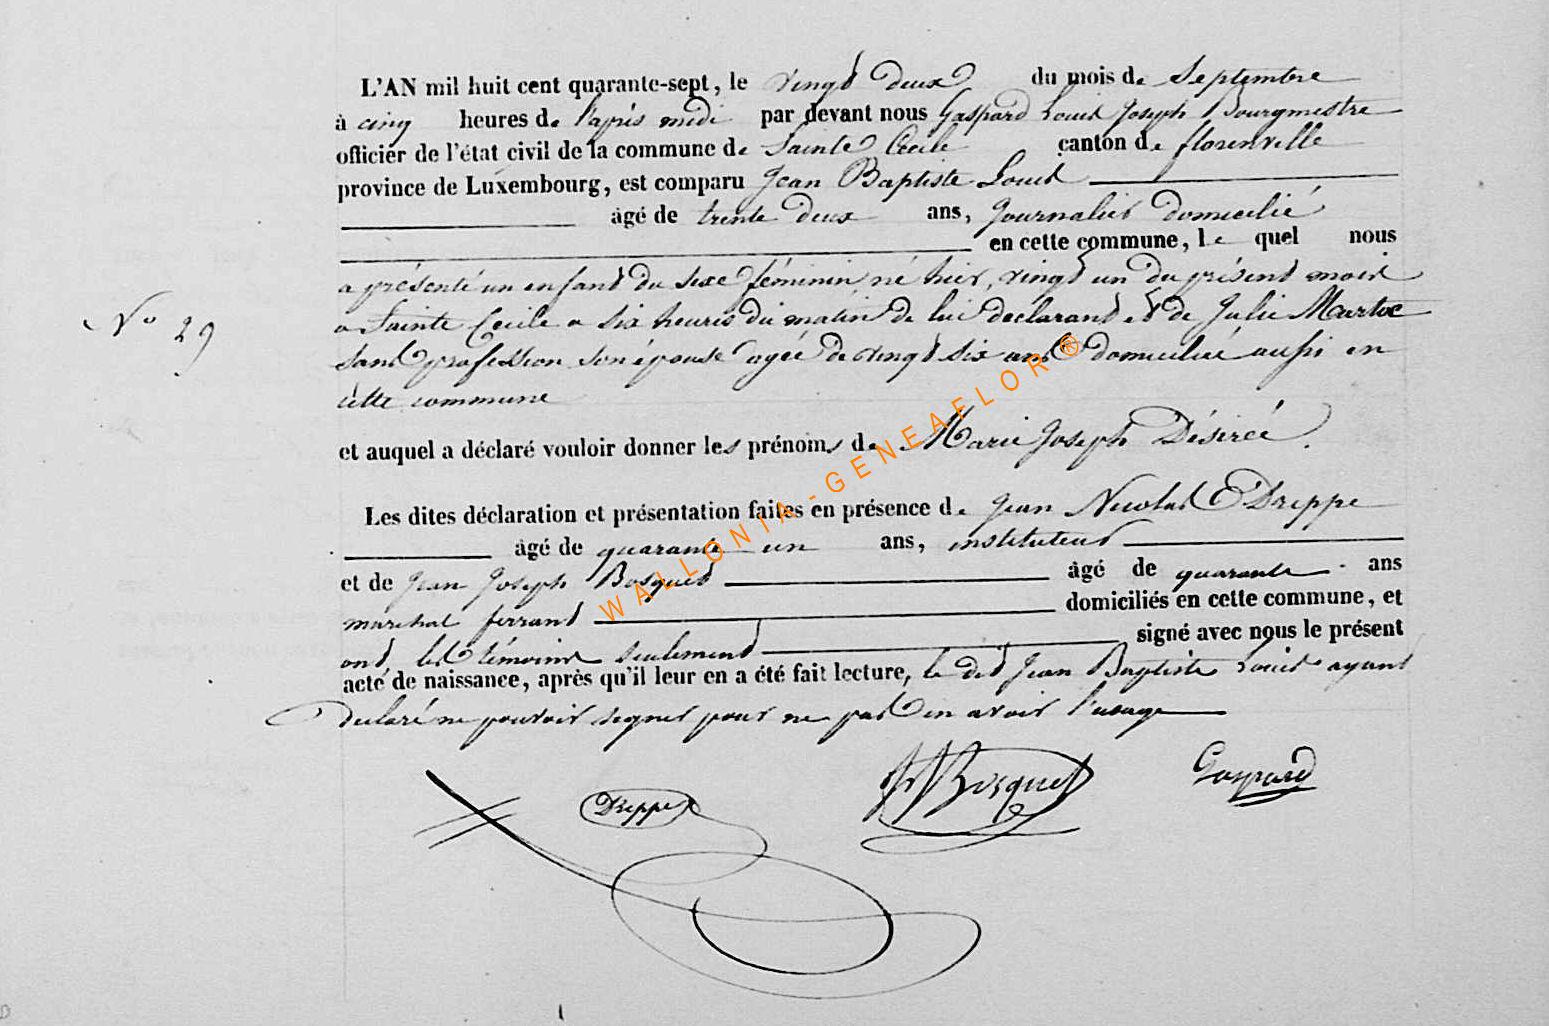 L'AN mil huit cent quarante-sept, le vingt deux du mois de Septembre
à cinq heures de l'après midi par devant nous Gaspard Louis Joseph Bourgmestre
officier de l'état civil de la commune de Sainte Cecile canton de florenville
province de Luxembourg, est comparu Jean Baptiste Louis
âgé de trente deux ans, Journalier domicilié
en cette commune, le quel nous
a présenté un enfant du sexe féminin né hier, vingt un du présent mois
N° 29
a Sainte Cecile a six heures du matin de lui declarant et de Julie
sans profession son épouse agée de vingt six ans domiciliée aussi en
cette commune
et auquel a déclaré vouloir donner les prénoms de Marie Joseph Désirée.
Les dites déclaration et présentation faites en présence de Jean Nicolas Dreppe
âgé de quarante un ans, instituteur
et de Jean Joseph Bosquet âgé de quarante ans
marechal ferrant domiciliés en cette commune, et
ont les témoins seulement signé avec nous le présent
acte de naissance, après qu'il leur en a été fait lecture, le dit Jean Baptiste Louis ayant
declaré ne pouvoir signer pour ne pas en avoir l'usage
Dreppe Bosquet Gaspard
WALLONIA-GENEAFLOR ®